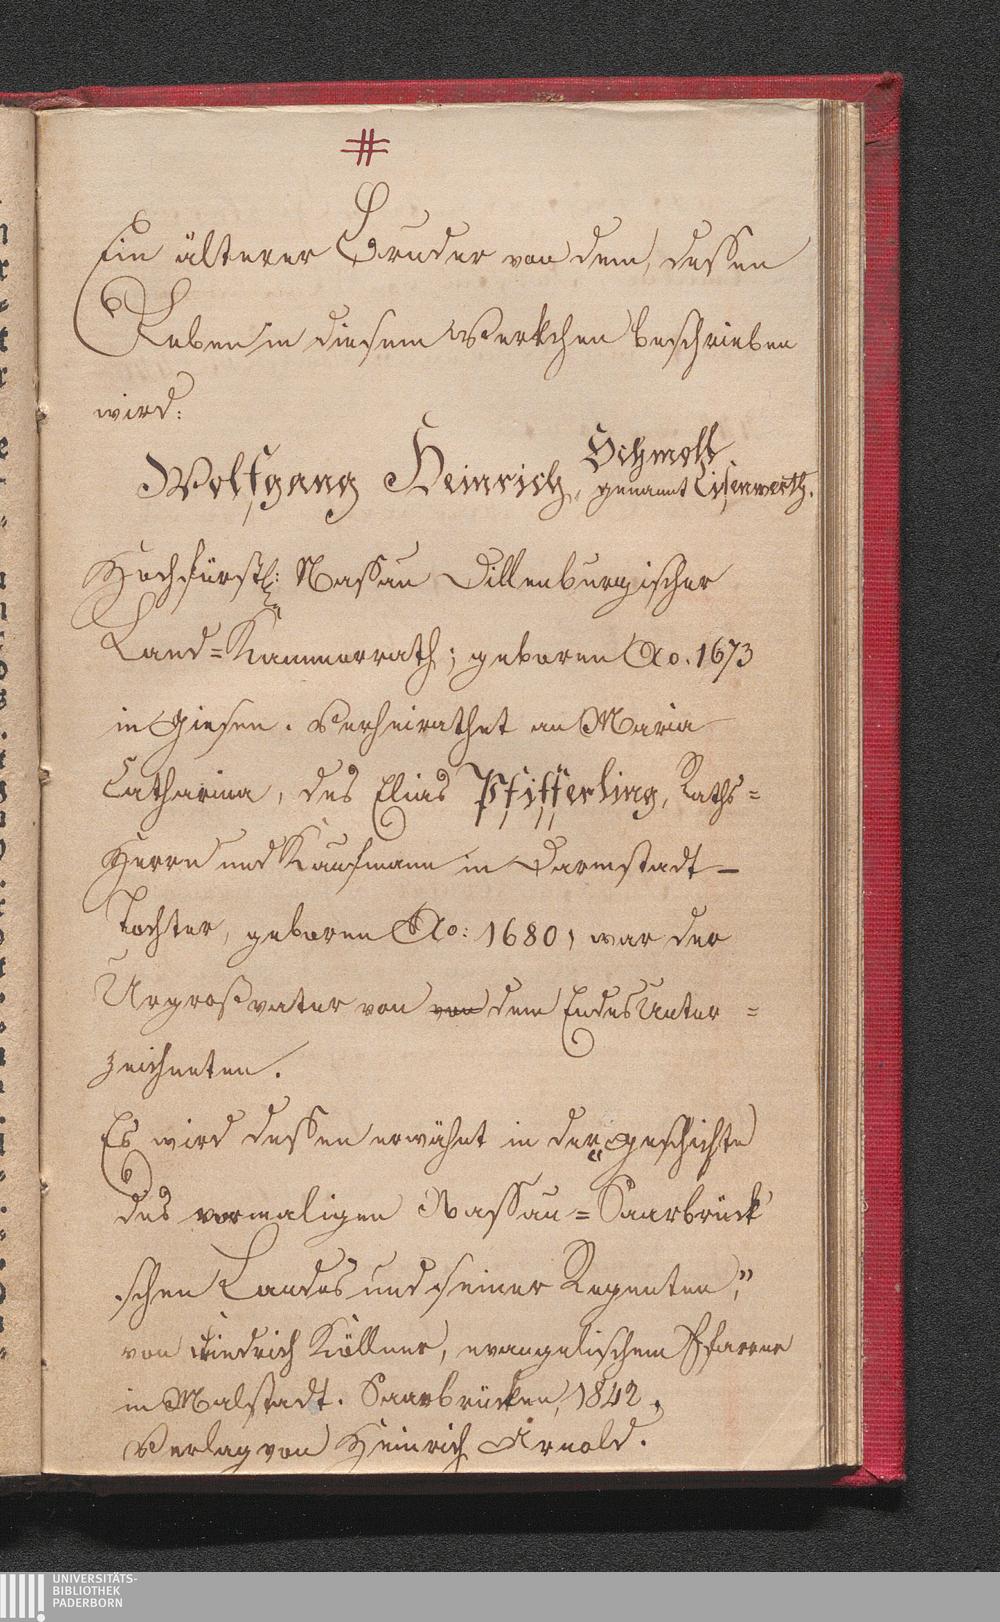 #
Ein älterer Bruder von dem, dessen
Leben in diesem Werkchen beschrieben
wird:
Schmoll
Wolfgang Heinrich, genannt Eisenwerth,
Hochfürstl: Nassau Dillenburgischer
Land=Kammerrath; geboren Ao. 1673
in Giesen. Verheirathet an Maria
Catharina, des Elias Pfifferling, Raths=
Herrn und Kaufmann in Darmstadt –
Tochter, geboren Ao: 1680, war der
Urgroßvater von von dem Endes Unter=
zeichneten.
Es wird dessen erwähnt in der „Geschichte
des vormaligen Nassau=Saarbrück'
schen Landes und seiner Regenten,”
von Friedrich Köllner, evangelischem Pfarrer
in Malstadt. Saarbrücken, 1842.
Verlag von Heinrich Arnold.
UNIVERSITÄTS-
BIBLIOTHEK
PADERBORN